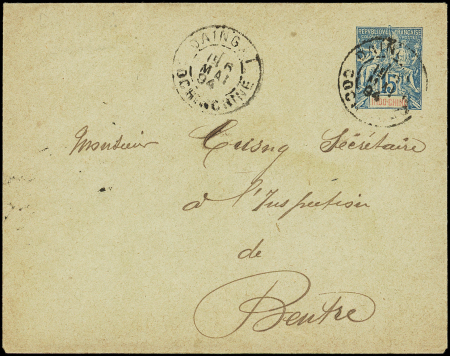 REPUBLIQUE FRANÇAISE
15
INDO-CHINE
MAI
04
COCHINCHINE
Monsieur Secrétaire
à l'Inspection
de
Bentre